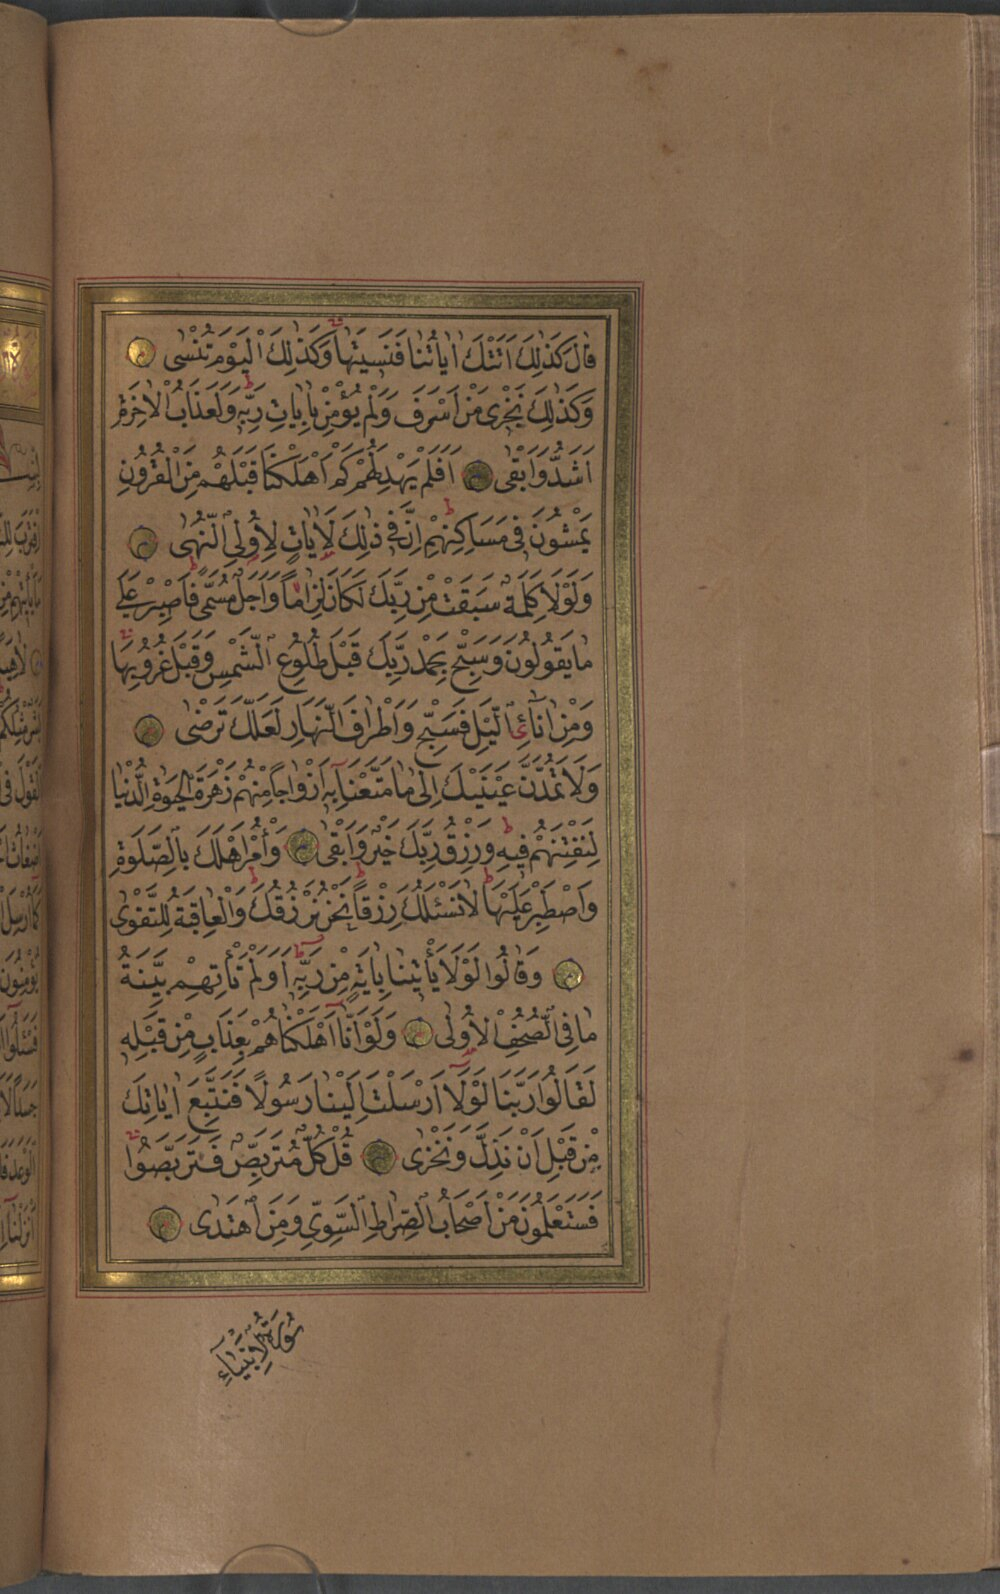 قَالَ كَذٰلِكَ اَتَتْكَ اٰيَاتُنَا فَنَسِيتَهَا وَكَذٰلِكَ الْيَوْمَ تُنْسٰى
وَكَذٰلِكَ نَجْزِى مَنْ اَسْرَفَ وَلَمْ يُؤْمِنْ بِاٰيَاتِ رَبِّهِ وَلَعَذَابُ الْاٰخِرَةِ
اَشَدُّ وَاَبْقٰى اَفَلَمْ يَهْدِ لَهُمْ كَمْ اَهْلَكْنَا قَبْلَهُمْ مِنَ الْقُرُونِ
يَمْشُونَ فِى مَسَاكِنِهِمْ اِنَّ فِى ذٰلِكَ لَاٰيَاتٍ لِاُولِى النُّهٰى
وَلَوْلَا كَلِمَةٌ سَبَقَتْ مِنْ رَبِّكَ لَكَانَ لِزَامًا وَاَجَلٌ مُسَمًّى فَاصْبِرْ عَلٰى
مَا يَقُولُونَ وَسَبِّحْ بِحَمْدِ رَبِّكَ قَبْلَ طُلُوعِ الشَّمْسِ وَقَبْلَ غُرُوبِهَا
وَمِنْ اٰنَائِ الَّيْلِ فَسَبِّحْ وَاَطْرَافَ النَّهَارِ لَعَلَّكَ تَرْضٰى
وَلَا تَمُدَّنَّ عَيْنَيْكَ اِلٰى مَا مَتَّعْنَا بِهِ اَزْوَاجًا مِنْهُمْ زَهْرَةَ الْحَيٰوةِ الدُّنْيَا
لِنَفْتِنَهُمْ فِيهِ وَرِزْقُ رَبِّكَ خَيْرٌ وَاَبْقٰى وَأْمُرْ اَهْلَكَ بِالصَّلٰوةِ
وَاصْطَبِرْ عَلَيْهَا لَا نَسْئَلُكَ رِزْقًا نَحْنُ نَرْزُقُكَ وَالْعَاقِبَةُ لِلتَّقْوٰى
وَقَالُوا لَوْلَا يَأْتِينَا بِاٰيَةٍ مِنْ رَبِّهِ اَوَلَمْ تَأْتِهِمْ بَيِّنَةُ
مَا فِى الصُّحُفِ الْاُولٰى وَلَوْ اَنَّا اَهْلَكْنَاهُمْ بِعَذَابٍ مِنْ قَبْلِهِ
لَقَالُوا رَبَّنَا لَوْلَا اَرْسَلْتَ اِلَيْنَا رَسُولًا فَنَتَّبِعَ اٰيَاتِكَ
مِنْ قَبْلِ اَنْ نَذِلَّ وَنَخْزٰى قُلْ كُلٌّ مُتَرَبِّصٌ فَتَرَبَّصُوا
فَسَتَعْلَمُونَ مَنْ اَصْحَابُ الصِّرَاطِ السَّوِىِّ وَمَنِ اهْتَدٰى
سُورَةُ الْاَنْبِيَاءِ